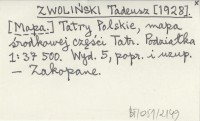 ZWOLIŃSKI Tadeusz [1928].
[Mapa.] Tatry Polskie, mapa
środkowej części Tatr. Podziałka
1:37 500. Wyd. 5, popr. i uzup.
– Zakopane.